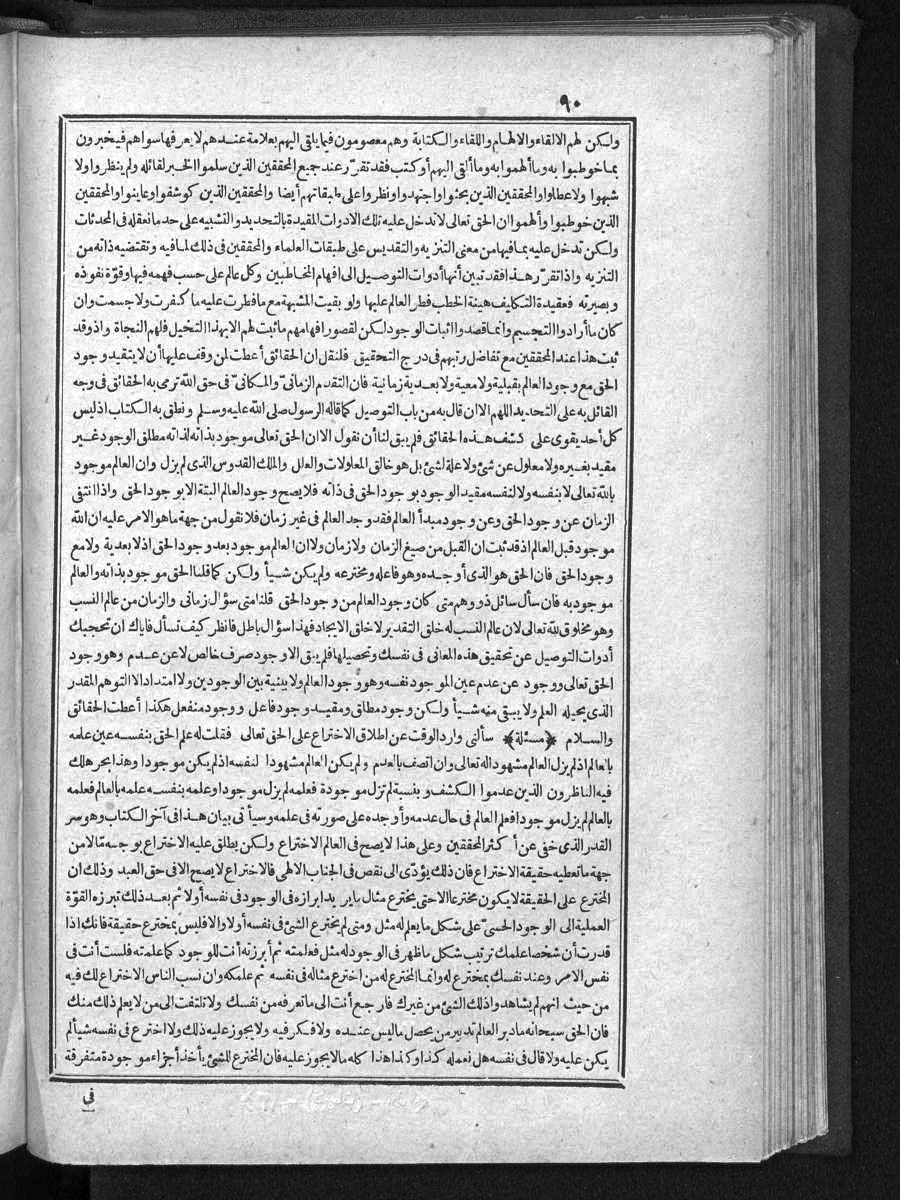 ٩٠
ولكن لهم الالقاء والالهام واللقاء والكتابة وهم معصومون فيما يلقى اليهم بعلامة عندهم لا يعرفها سواهم فيخبرون
بما خوطبوا به وما ألهموا به وما ألقى اليهم أو كتب فقد تقرر عند جميع المحققين الذين سلموا الخبر لقائله ولم ينظروا ولا
شبهوا ولا عطلوا والمحققين الذين بحثوا واجتهدوا ونظروا على طبقاتهم أيضا والمحققين الذين كوشفوا وعاينوا والمحققين
الذين خوطبوا وألهموا ان الحق تعالى لا تدخل عليه تلك الادوات المقيدة بالتحديد والتشبيه على حد ما نعقله فى المحدثات
ولكن تدخل عليه بما فيها من معنى التنزيه والتقديس على طبقات العلماء والمحققين فى ذلك لما فيه وتقتضيه ذاته من
التنزيه واذا تقرر هذا فقد تبين أنها أدوات التوصيل الى افهام المخاطبين وكل عالم على حسب فهمه فيها وقوة نفوذه
وبصيرته فعقيدة التكليف هينة الخطب فطر العالم عليها ولو بقيت المشبهة مع ما فطرت عليه ما كفرت ولا جسمت وان
كان ما أرادوا التجسيم وانما قصدوا اثبات الوجود لكن لقصور افهامهم ما ثبت لهم الا بهذا التخيل فلهم النجاة واذ وقد
ثبت هذا عند المحققين مع تفاضل رتبهم فى درج التحقيق فلنقل ان الحقائق أعطت لمن وقف عليها أن لا يتقيد وجود
الحق مع وجود العالم بقبلية ولا معية ولا بعدية زمانية فان التقدم الزمانى والمكانى فى حق الله ترمى به الحقائق فى وجه
القائل به على التحديد اللهم الا ان قال به من باب التوصيل كما قاله الرسول صلى الله عليه وسلم ونطق به الكتاب اذ ليس
كل أحد يقوى على كشف هذه الحقائق فلم يبق لنا أن نقول الا ان الحق تعالى موجود بذاته لذاته مطلق الوجود غير
مقيد بغيره ولا معلول عن شئ ولا علة لشئ بل هو خالق المعلولات والعلل والملك القدوس الذى لم يزل وان العالم موجود
بالله تعالى لا بنفسه ولا لنفسه مقيد الوجود بوجود الحق فى ذاته فلا يصح وجود العالم البتة الا بوجود الحق واذا انتفى
الزمان عن وجود الحق وعن وجود مبدأ العالم فقد وجد العالم فى غير زمان فلا نقول من جهة ما هو الامر عليه ان الله
موجود قبل العالم اذ قد ثبت ان القبل من صيغ الزمان ولا زمان ولا ان العالم موجود بعد وجود الحق اذ لا بعدية ولا مع
وجود الحق فان الحق هو الذى أوجده وهو فاعله ومخترعه ولم يكن شيأ ولكن كما قلنا الحق موجود بذاته والعالم
موجود به فان سأل سائل ذو وهم متى كان وجود العالم من وجود الحق قلنا متى سؤال زمانى والزمان من عالم النسب
وهو مخلوق لله تعالى لان عالم النسب له خلق التقدير لا خلق الايجاد فهذا سؤال باطل فانظر كيف تسأل فاياك ان تحجبك
أدوات التوصيل عن تحقيق هذه المعانى فى نفسك وتحصيلها فلم يبق الا وجود صرف خالص لا عن عدم وهو وجود
الحق تعالى ووجود عن عدم عين الموجود نفسه وهو وجود العالم ولا بينية بين الوجودين ولا امتداد الا التوهم المقدر
الذى يحيله العلم ولا يبقى منه شيأ ولكن وجود مطلق ومقيد وجود فاعل ووجود منفعل هكذا أعطت الحقائق
والسلام ﴿مسئلة﴾ سألنى وارد الوقت عن اطلاق الاختراع على الحق تعالى فقلت له علم الحق بنفسه عين علمه
بالعالم اذ لم يزل العالم مشهودا له تعالى وان اتصف بالعدم ولم يكن العالم مشهودا لنفسه اذ لم يكن موجودا وهذا بحر هلك
فيه الناظرون الذين عدموا الكشف وبنسبة لم تزل موجودة فعلمه لم يزل موجودا وعلمه بنفسه علمه بالعالم فعلمه
بالعالم لم يزل موجودا فعلم العالم فى حال عدمه وأوجده على صورته فى علمه وسيأتى بيان هذا فى آخر الكتاب وهو سر
القدر الذى خفى عن أكثر المحققين وعلى هذا لا يصح فى العالم الاختراع ولكن يطلق عليه الاختراع بوجه ما لا من
جهة ما تعطيه حقيقة الاختراع فان ذلك يؤدى الى نقص فى الجناب الالهى فالاختراع لا يصح الا فى حق العبد وذلك ان
المخترع على الحقيقة لا يكون مخترعا الا حتى يخترع مثال ما يريد ابرازه فى الوجود فى نفسه أولا ثم بعد ذلك تبرزه القوة
العملية الى الوجود الحسى على شكل ما يعلم له مثل ومتى لم يخترع الشئ فى نفسه أولا والا فليس بمخترع حقيقة فانك اذا
قدرت أن شخصا علمك ترتيب شكل ما ظهر فى الوجود له مثل فعلمته ثم أبرزته أنت للوجود كما علمته فلست أنت فى
نفس الامر وعند نفسك بمخترع له وانما المخترع له من اخترع مثاله فى نفسه ثم علمكه وان نسب الناس الاختراع لك فيه
من حيث انهم لم يشاهدوا ذلك الشئ من غيرك فارجع أنت الى ما تعرفه من نفسك ولا تلتفت الى من لا يعلم ذلك منك
فان الحق سبحانه ما دبر العالم تدبير من يحصل ما ليس عنده ولا فكر فيه ولا يجوز عليه ذلك ولا اخترع فى نفسه شيأ لم
يكن عليه ولا قال فى نفسه هل نعمله كذا وكذا هذا كله ما لا يجوز عليه فان المخترع للشئ يأخذ أجزاء موجودة متفرقة
فى